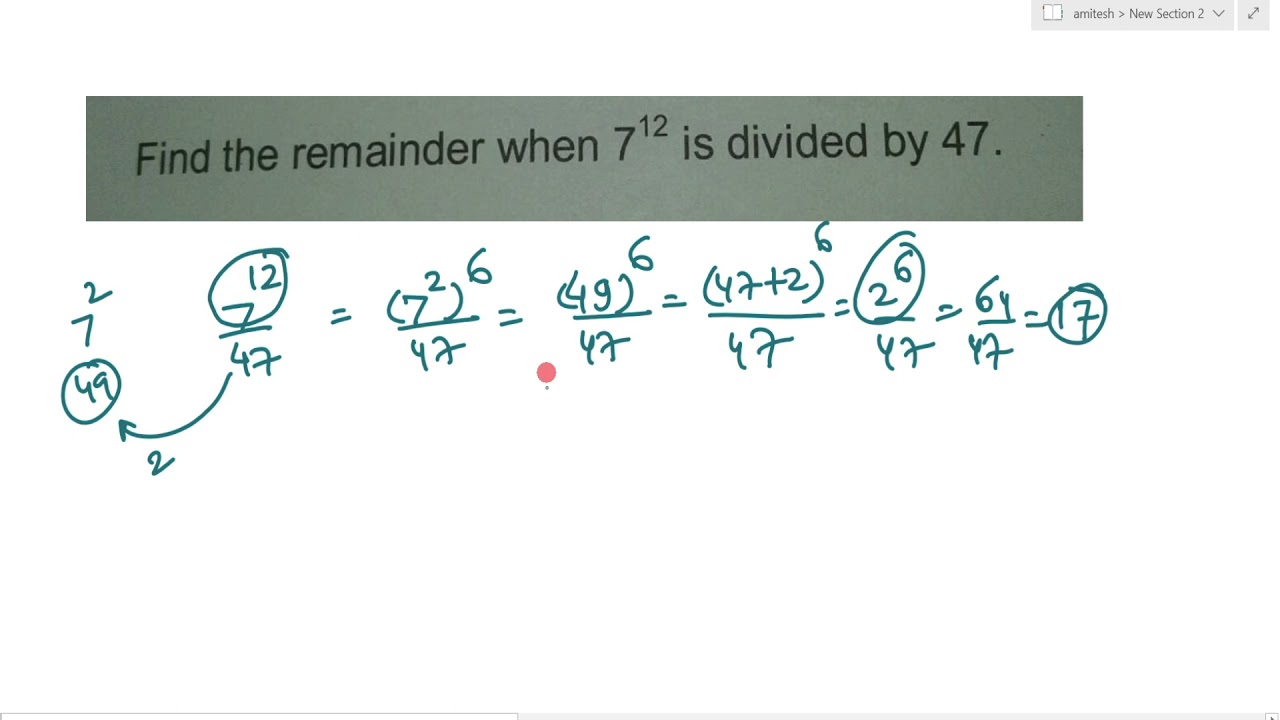 amitesh > New Section 2
Find the remainder when 7¹² is divided by 47.
7² 7¹²/47 = (7²)⁶/47 = (49)⁶/47 = (47+2)⁶/47 = 2⁶/47 = 64/47 = 17
49
2